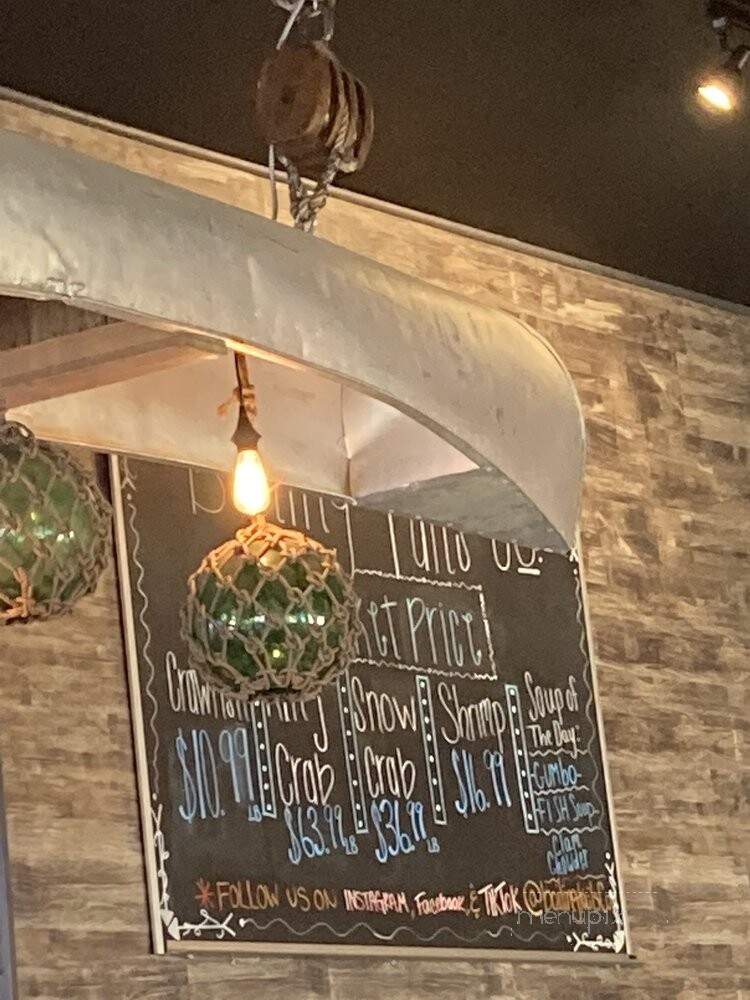 Market Price
Crawfish
$10.99 LB
King
Crab
$63.99 LB
Snow
Crab
$36.99 LB
Shrimp
$16.99
Soup of
The Day:
GUMBO
FISH Soup
Clam
Chowder
*FOLLOW US ON INSTAGRAM, Facebook, & TikTok
menupix